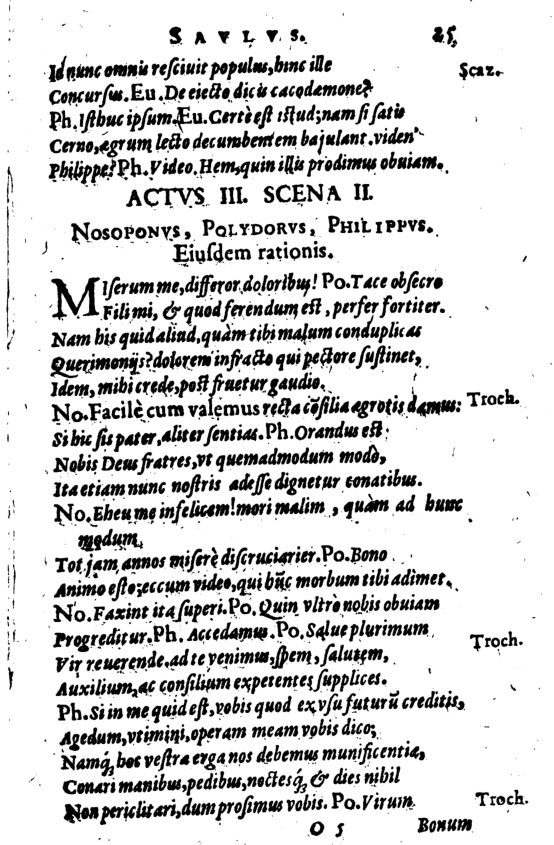 SAVLVS. 85
Id nunc omnis resciuit populus, hinc ille Scaz.
Concursus. Eu. De eiecto dicis cacodæmone?
Ph. Isthuc ipsum. Eu. Certè est istud; nam si satis
Cerno, ægrum lecto decumbentem bajulant. viden'
Philippe? Ph. Video. Hem, quin illis prodimus obuiam.
ACTVS III. SCENA II.
NOSOPONVS, POLYDORVS, PHILIPPVS.
Eiusdem rationis.
MIserum me, differor doloribus! Po. Tace obsecro
Fili mi, & quod ferendum est, perfer fortiter.
Nam his quid aliud, quàm tibi malum conduplicas
Querimonijs? dolorem infracto qui pectore sustinet,
Idem, mihi crede, pòst fruetur gaudio.
No. Facilè cum valemus recta cõsilia ægrotis damus: Troch.
Si hic sis pater, aliter sentias. Ph. Orandus est
Nobis Deus fratres, vt quemadmodum modò,
Ita etiam nunc nostris adesse dignetur conatibus.
No. Eheu me infelicem! mori malim, quàm ad hunc
modum
Tot jam annos miserè discruciarier. Po. Bono
Animo esto; eccum video, qui hũc morbum tibi adimet.
No. Faxint ita superi. Po. Quin vltrò nobis obuiam
Progreditur. Ph. Accedamus. Po. Salue plurimum
Vir reuerende, ad te venimus, spem, salutem, Troch.
Auxilium, ac consilium expetentes supplices.
Ph. Si in me quid est, vobis quod ex vsu futurũ creditis,
Agedum, vtimini, operam meam vobis dico;
Namq́; hoc vestra erga nos debemus munificentia,
Conari manibus, pedibus, noctesq́; & dies nihil
Non periclitari, dum prosimus vobis. Po. Virum Troch.
O 5 Bonum